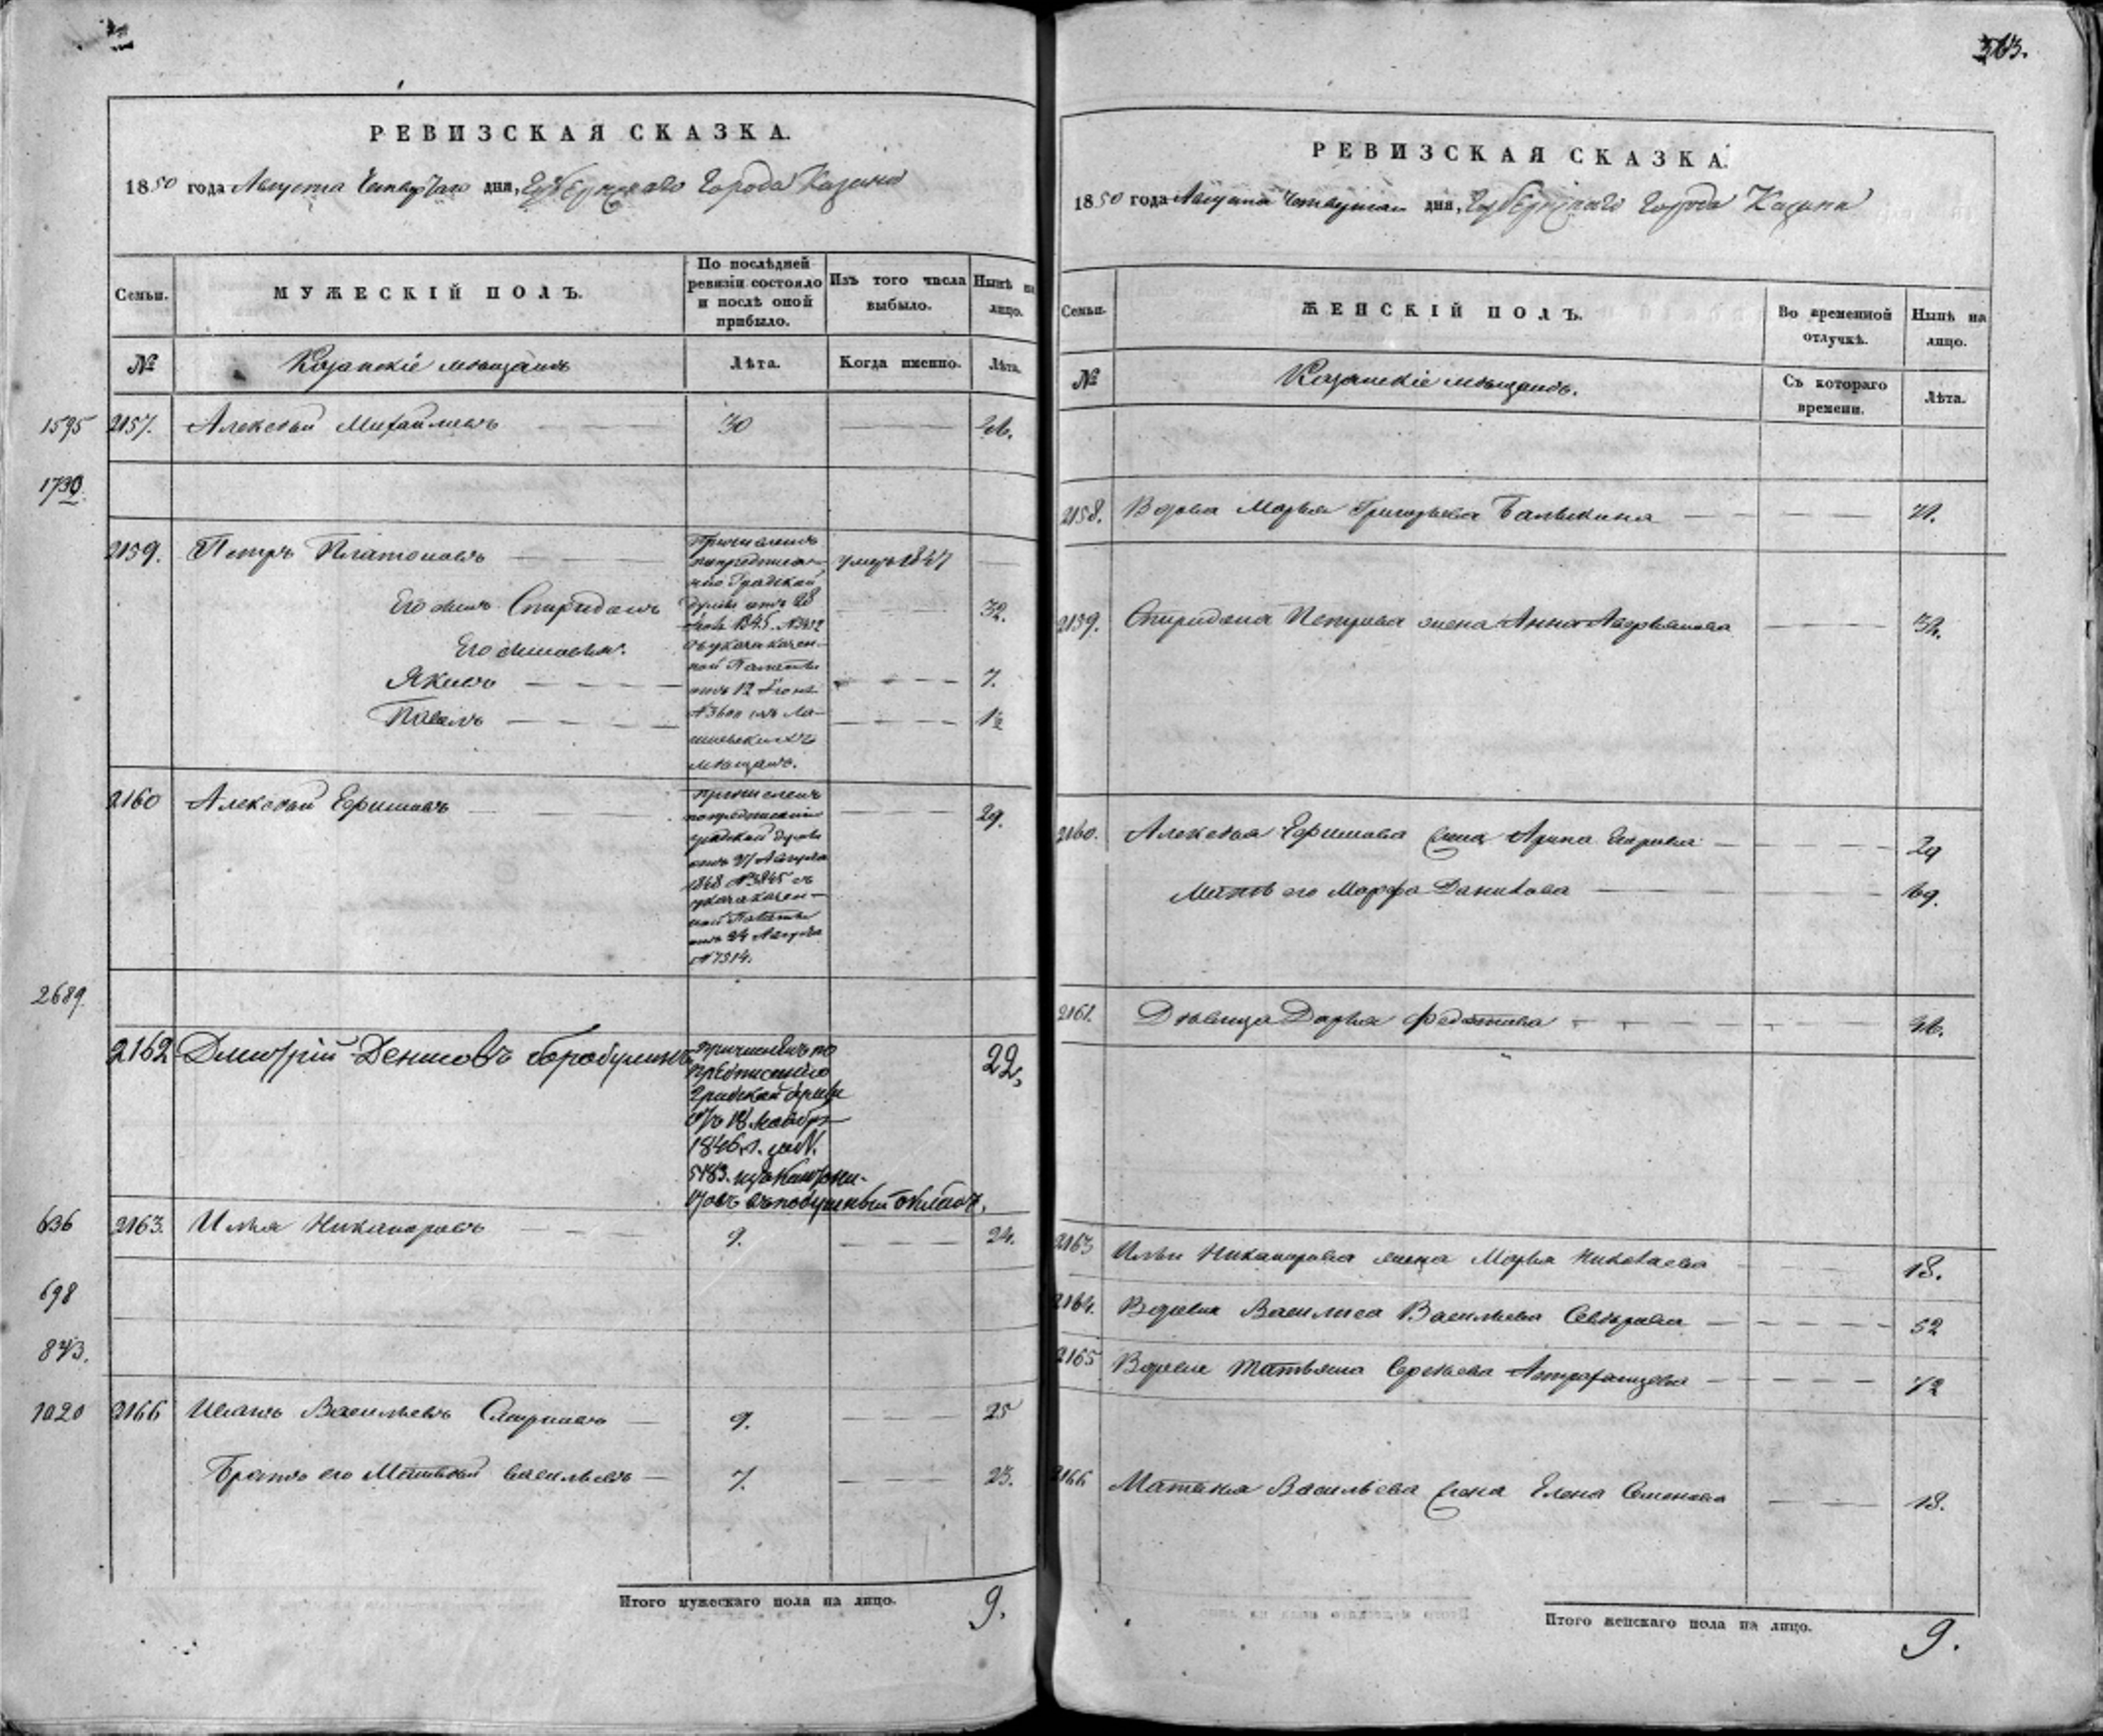 РЕВИЗСКАЯ СКАЗКА.
1850 года Августа Четвертаго дня, Губернскаго Города Казани
Семьи.
МУЖЕСКІЙ ПОЛЪ.
По послѣдней ревизіи состояло и послѣ оной прибыло.
Изъ того числа выбыло.
Нынѣ на лицо.
№
Казанскіе мѣщане
Лѣта.
Когда именно.
Лѣта.
1595 2157. Алексѣй Михайловъ 30
1730.
2159. Петръ Платоновъ умеръ 1847
Его сынъ Спиридонъ 32.
Его сыновья.
Якимъ 7.
Павелъ 1½
причисленъ
по предписа-
нію Градской
Думы отъ 28
1845. №
и указа казен-
ной Палаты
отъ 12 Іюня
№ изъ Ла-
ишевскихъ
мѣщанъ.
2160 Алексѣй Ефимовъ 29.
причисленъ
по предписанію
градской думы
отъ 27 Августа
1848 № 3845 и
указа казен-
ной Палаты
отъ 24 Августа
№ 7314.
2689.
2162 Дмитрій Денисовъ 22,
причисленъ по
предписанію
градской думы
отъ 18 Ноября
1846 г. за N.
5783. изъ Кантони-
товъ въ подушный окладъ,
636 2163. Илья Никаноровъ 9. 24.
698
843.
1020 2166 Иванъ Васильевъ 9. 25
Братъ его Матвѣй Васильевъ 7. 23.
Итого мужескаго пола на лицо. 9.
363.
РЕВИЗСКАЯ СКАЗКА.
1850 года Августа Четвертаго дня, Губернскаго Города Казани
Семьи.
ЖЕНСКІЙ ПОЛЪ.
Во временной отлучкѣ.
Нынѣ на лицо.
№
Казанскіе мѣщане.
Съ котораго времени.
Лѣта.
2158. Вдова Марья Григорьева 71.
2159. Спиридона Петрова жена Анна 32.
2160. Алексѣя Ефимова жена Арина 29
Мать его Марфа Данилова 69.
2161. Дѣвица Дарья Федотова
2163 Ильи Никанорова жена Марья Николаева 18.
2164. Вдова Василиса Васильева 52
2165 Вдова Татьяна Сергѣева Астраханцева 72
2166 Матвѣя Васильева жена Елена Семенова 18.
Итого женскаго пола на лицо. 9.